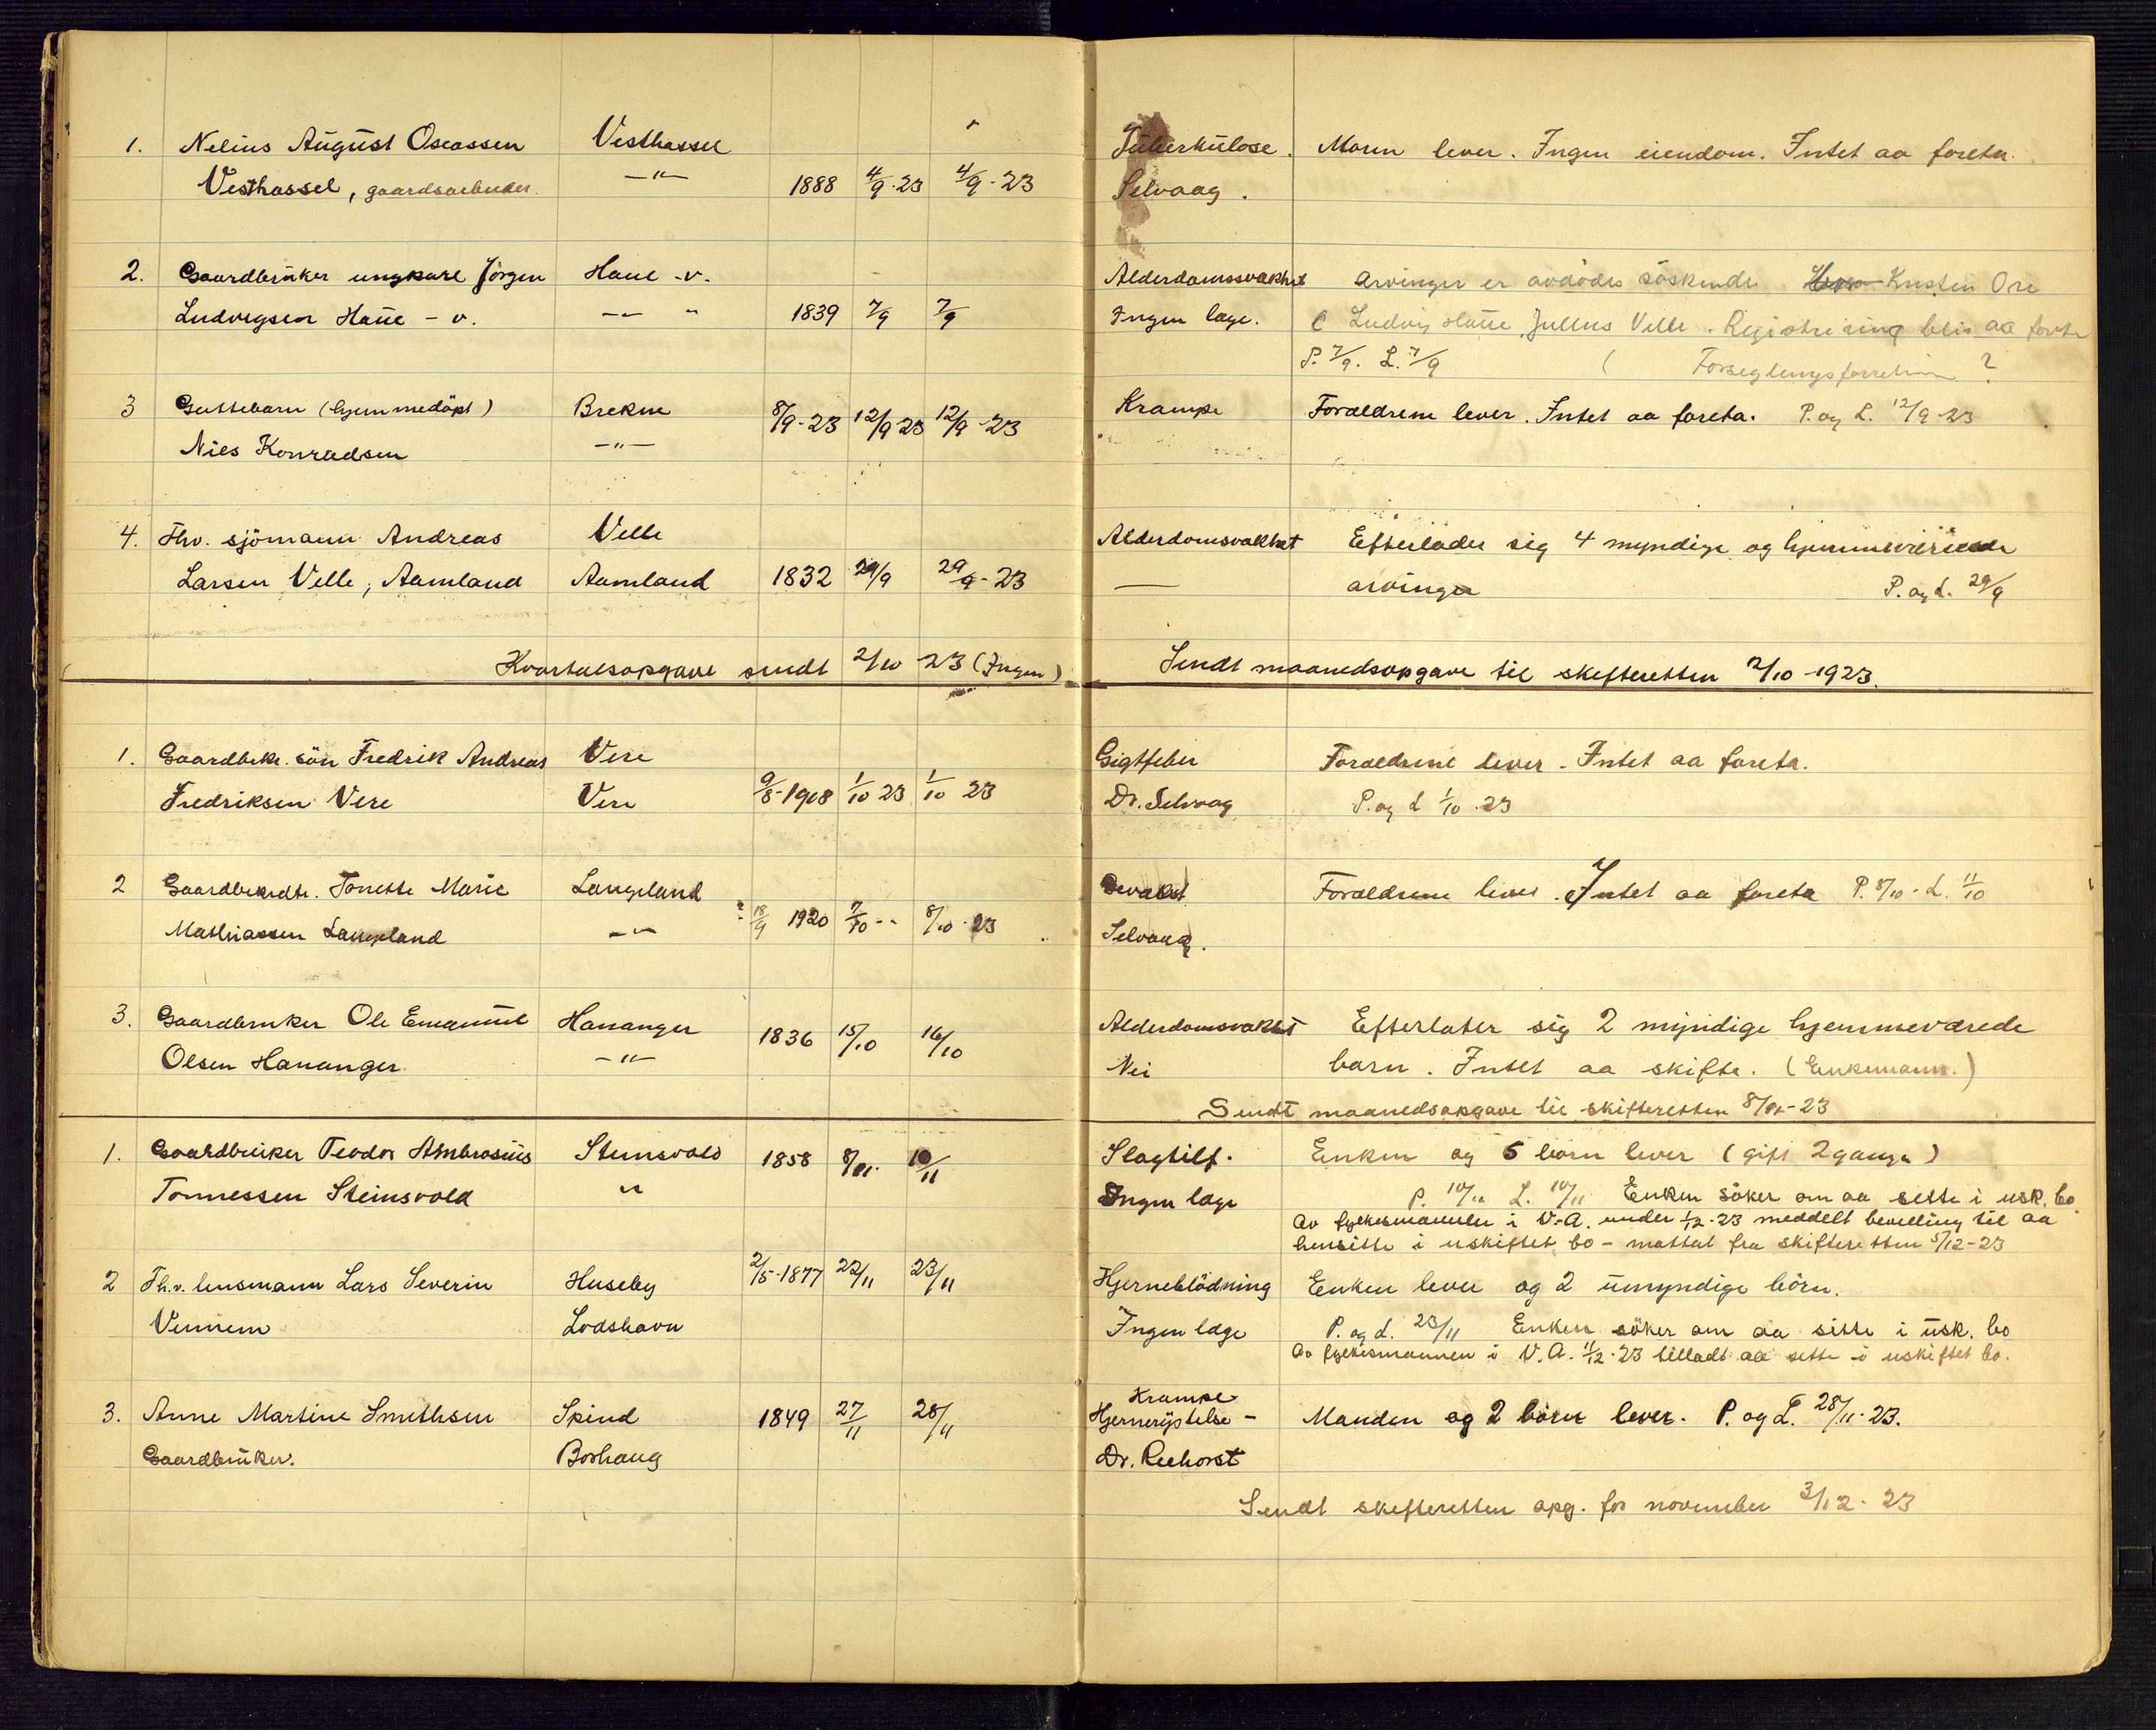 1. Nelius August Oscassen Vesthassel Tuberkulose. Moren lever. Ingen eiendom. Intet aa foreta.
Vesthassel, gaardsarbeider. —"— 1888 4/9-23 4/9-23 Selvaag.
2. Gaardbruker ungkarl Jörgen Haue -v. Alderdomssvakhet Arvinger er avdödes söskende Kristen Ore
Ludvigsen Haue - v. —"— 1839 7/9 7/9 Ingen læge. Ludvig Haue, Julius Velle. Registrering blir aa foreta
P. 7/9. L. 7/9 ( Forseglingsforretning ?
3 Guttebarn (hjemmedöpt) Brekne 8/9-23 12/9 23 12/9-23 Krampe Foraeldrene lever. Intet aa foreta. P. og L. 12/9-23
Nies Konradsen —"—
4. Fhv. sjömann Andreas Velle Alderdomsvakhet Efterlader sig 4 myndige og hjemmeværende
Larsen Velle, Aamland Aamland 1832 29/9 29/9-23 — arvinger P. og L. 29/9
Kvartalsopgave sendt 2/10 23 (Ingen) Sendt maanedsopgave til skifteretten 2/10-1923.
1. Gaardbrk. sön Fredrik Andreas Vere Gigtfeber Foraeldrene lever. Intet aa foreta.
Fredriksen Vere Vere 9/8-1908 1/10 23 1/10 23 Dr. Selvaag P. og L 1/10.23
2 Gaardbrkrdtr. Tonette Marie Langeland Foraeldrene lever. Intet aa foreta P. 8/10. L. 11/10
Mathiassen Langeland —"— ? 18/9 1920 7/10 -- 8/10.23 Selvaag.
3. Gaardbruker Ole Emanuel Hananger 1836 15/10 16/10 Alderdomsvakhet Efterlater sig 2 myndige hjemmeværede
Olsen Hananger. —"— Nei barn. Intet aa skifte. (Enkemann.)
Sendt maanedsopgave til skifteretten 8/11-23
1. Gaardbruker Teodor Ambrosius Steinsvold 1858 8/11. 10/11 Slagtilf. Enken og 5 börn lever (gift 2 ganger)
Tonnessen Steinsvold " Ingen læge P. 10/11 L. 10/11 Enken söker om aa sitte i usk. bo
Av fylkesmannen i V.-A. under 1/12-23 meddelt bevilling til aa
hensitte i uskiftet bo - mottat fra skifteretten 5/12-23
2 Fh.v. lensmann Lars Severin Huseby 2/5-1877 22/11 23/11 Hjerneblödning Enken lever og 2 umyndige börn.
Vennem Lodshavn Ingen læge P. og L. 23/11 Enken söker om aa sitte i usk. bo
Av fylkesmannen i V.A. 11/12-23 tilladt aa sitte i uskiftet bo.
3. Anne Martine Smithsen Spind 1849 27/11 28/11 Krampe Hjernerystelse - Manden og 2 börn lever. P. og L. 28/11-23.
Gaardbruker. Borhaug Dr. Reehorst
Sendt skifteretten opg. for november 3/12-23